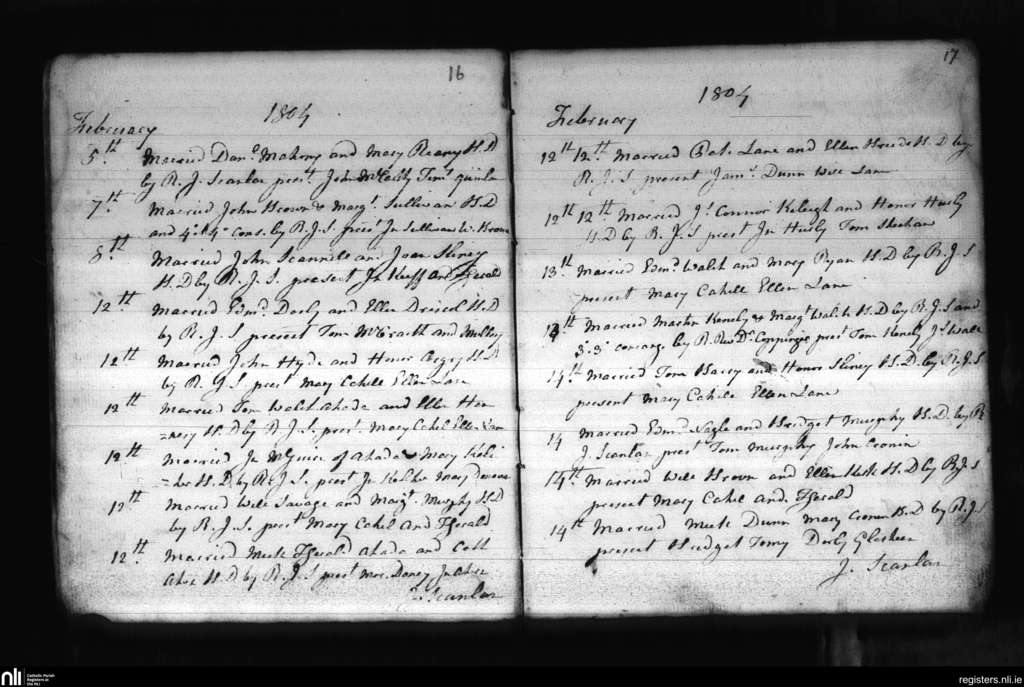 16
1804
February
5th Married Danl Mahony and Mary Reany H.D
by R. J. Scanlan prest John McCarthy Timy Quinlan
7th Married John Brown & Margt Sullivan H.D
and 4o. & 4o cons. by R.J.S. prest Jn Sullivan W. Brown
8th Married John Scannele and Joan Sliney
H.D by R. J. S. present Jn Keeff and Fgerald
12th Married Edmd Dorly and Ellen Driscol H.D
by R. J. S present Tom McGrath and
12th Married John Hyde and Honor H.D
by R. J. S prest Mary Cahill Ellen Lane
12th Married Tom Walsh Ahada and Ellen Hen
=nesy H.D by R J. S. prest. Mary Cahil Ellen Lane
12th Married Jn McGuire of Ahada & Mary Keli
=her H.D by R. J. S. prest Jn Mary
12th Married Will Savage and Margt. Murphy H.D
by R. J. S. prest Mary Cahil and Fgerald
12th Married Mick Fgerald Ahada and Cath
Aher H.D by R. J. S prest Mor. Dancy Jn Aher
J. Scanlan
17
1804
February
12th 12th Married Bat. Lane and Ellen H.D by
R. J. S present Jams. Dunn Will Lane
12th 12th Married Js Connor Keleigh and Honor Hurly
H.D by R. J. S prest Jn Hurly Tom Sheehan
13th Married Edmd Walsh and Mary Ryan H.D by R. J S
present Mary Cahill Ellen Lane
13th Married Martin Kenely & Margt Walsh H.D by R. J S and
3o. 3o consang by R. Revd Dr Coppinger prest Tom Kenely Js Wall
14th Married Tom Barry and Honor Sliney H.D. by R. J. S
present Mary Cahill Ellen Lane
14 Married Edmd Nagle and Bridget Murphy H.D. by R
J. Scanlan prest Tom Murphy John Cronin
14th Married Will Brown and Ellen H.D by R. J. S
present Mary Cahil and Fgerald
14th Married Mick Dunn Mary Cronin H.D by R. J. S
present Bridget Tomy Derby Glisheen
J. Scanlan
nli
Catholic Parish
Registers at
the NLI
registers.nli.ie